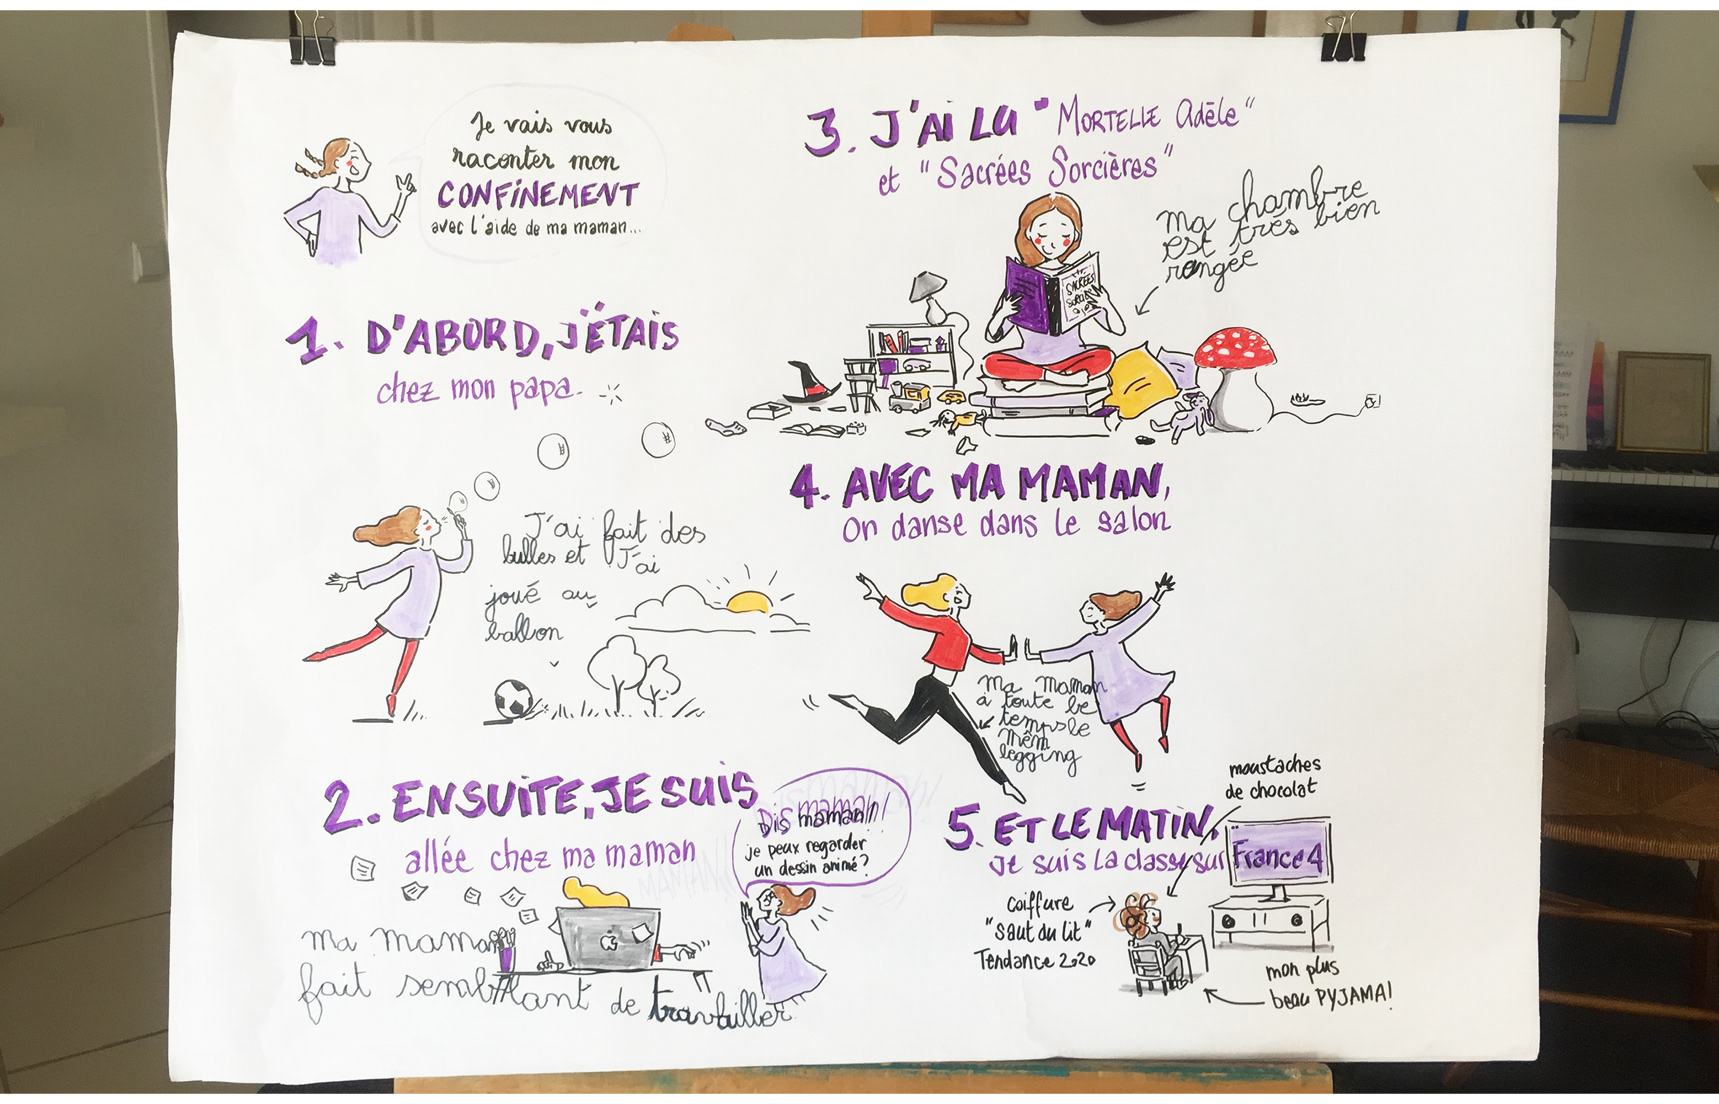 Je vais vous
raconter mon
CONFINEMENT
avec l'aide de ma maman...
1. D'ABORD, J'ÉTAIS
chez mon papa.
J'ai fait des
bulles et J'ai
joué au
ballon
2. ENSUITE, JE SUIS
allée chez ma maman
Dis maman!!
je peux regarder
un dessin animé?
ma maman
fait semblant de travailler
3. J'AI LU "MORTELLE Adèle"
et "Sacrées Sorcières"
SACRÉES
SORCIÈRES
ma chambre
est très bien
rangée
4. AVEC MA MAMAN,
On danse dans le salon
Ma maman
à toute le
temps le
mêm
legging
5. ET LE MATIN,
Je suis la classe sur France 4
moustaches
de chocolat
coiffure
"saut du lit"
Tendance 2020
mon plus
beau PYJAMA!